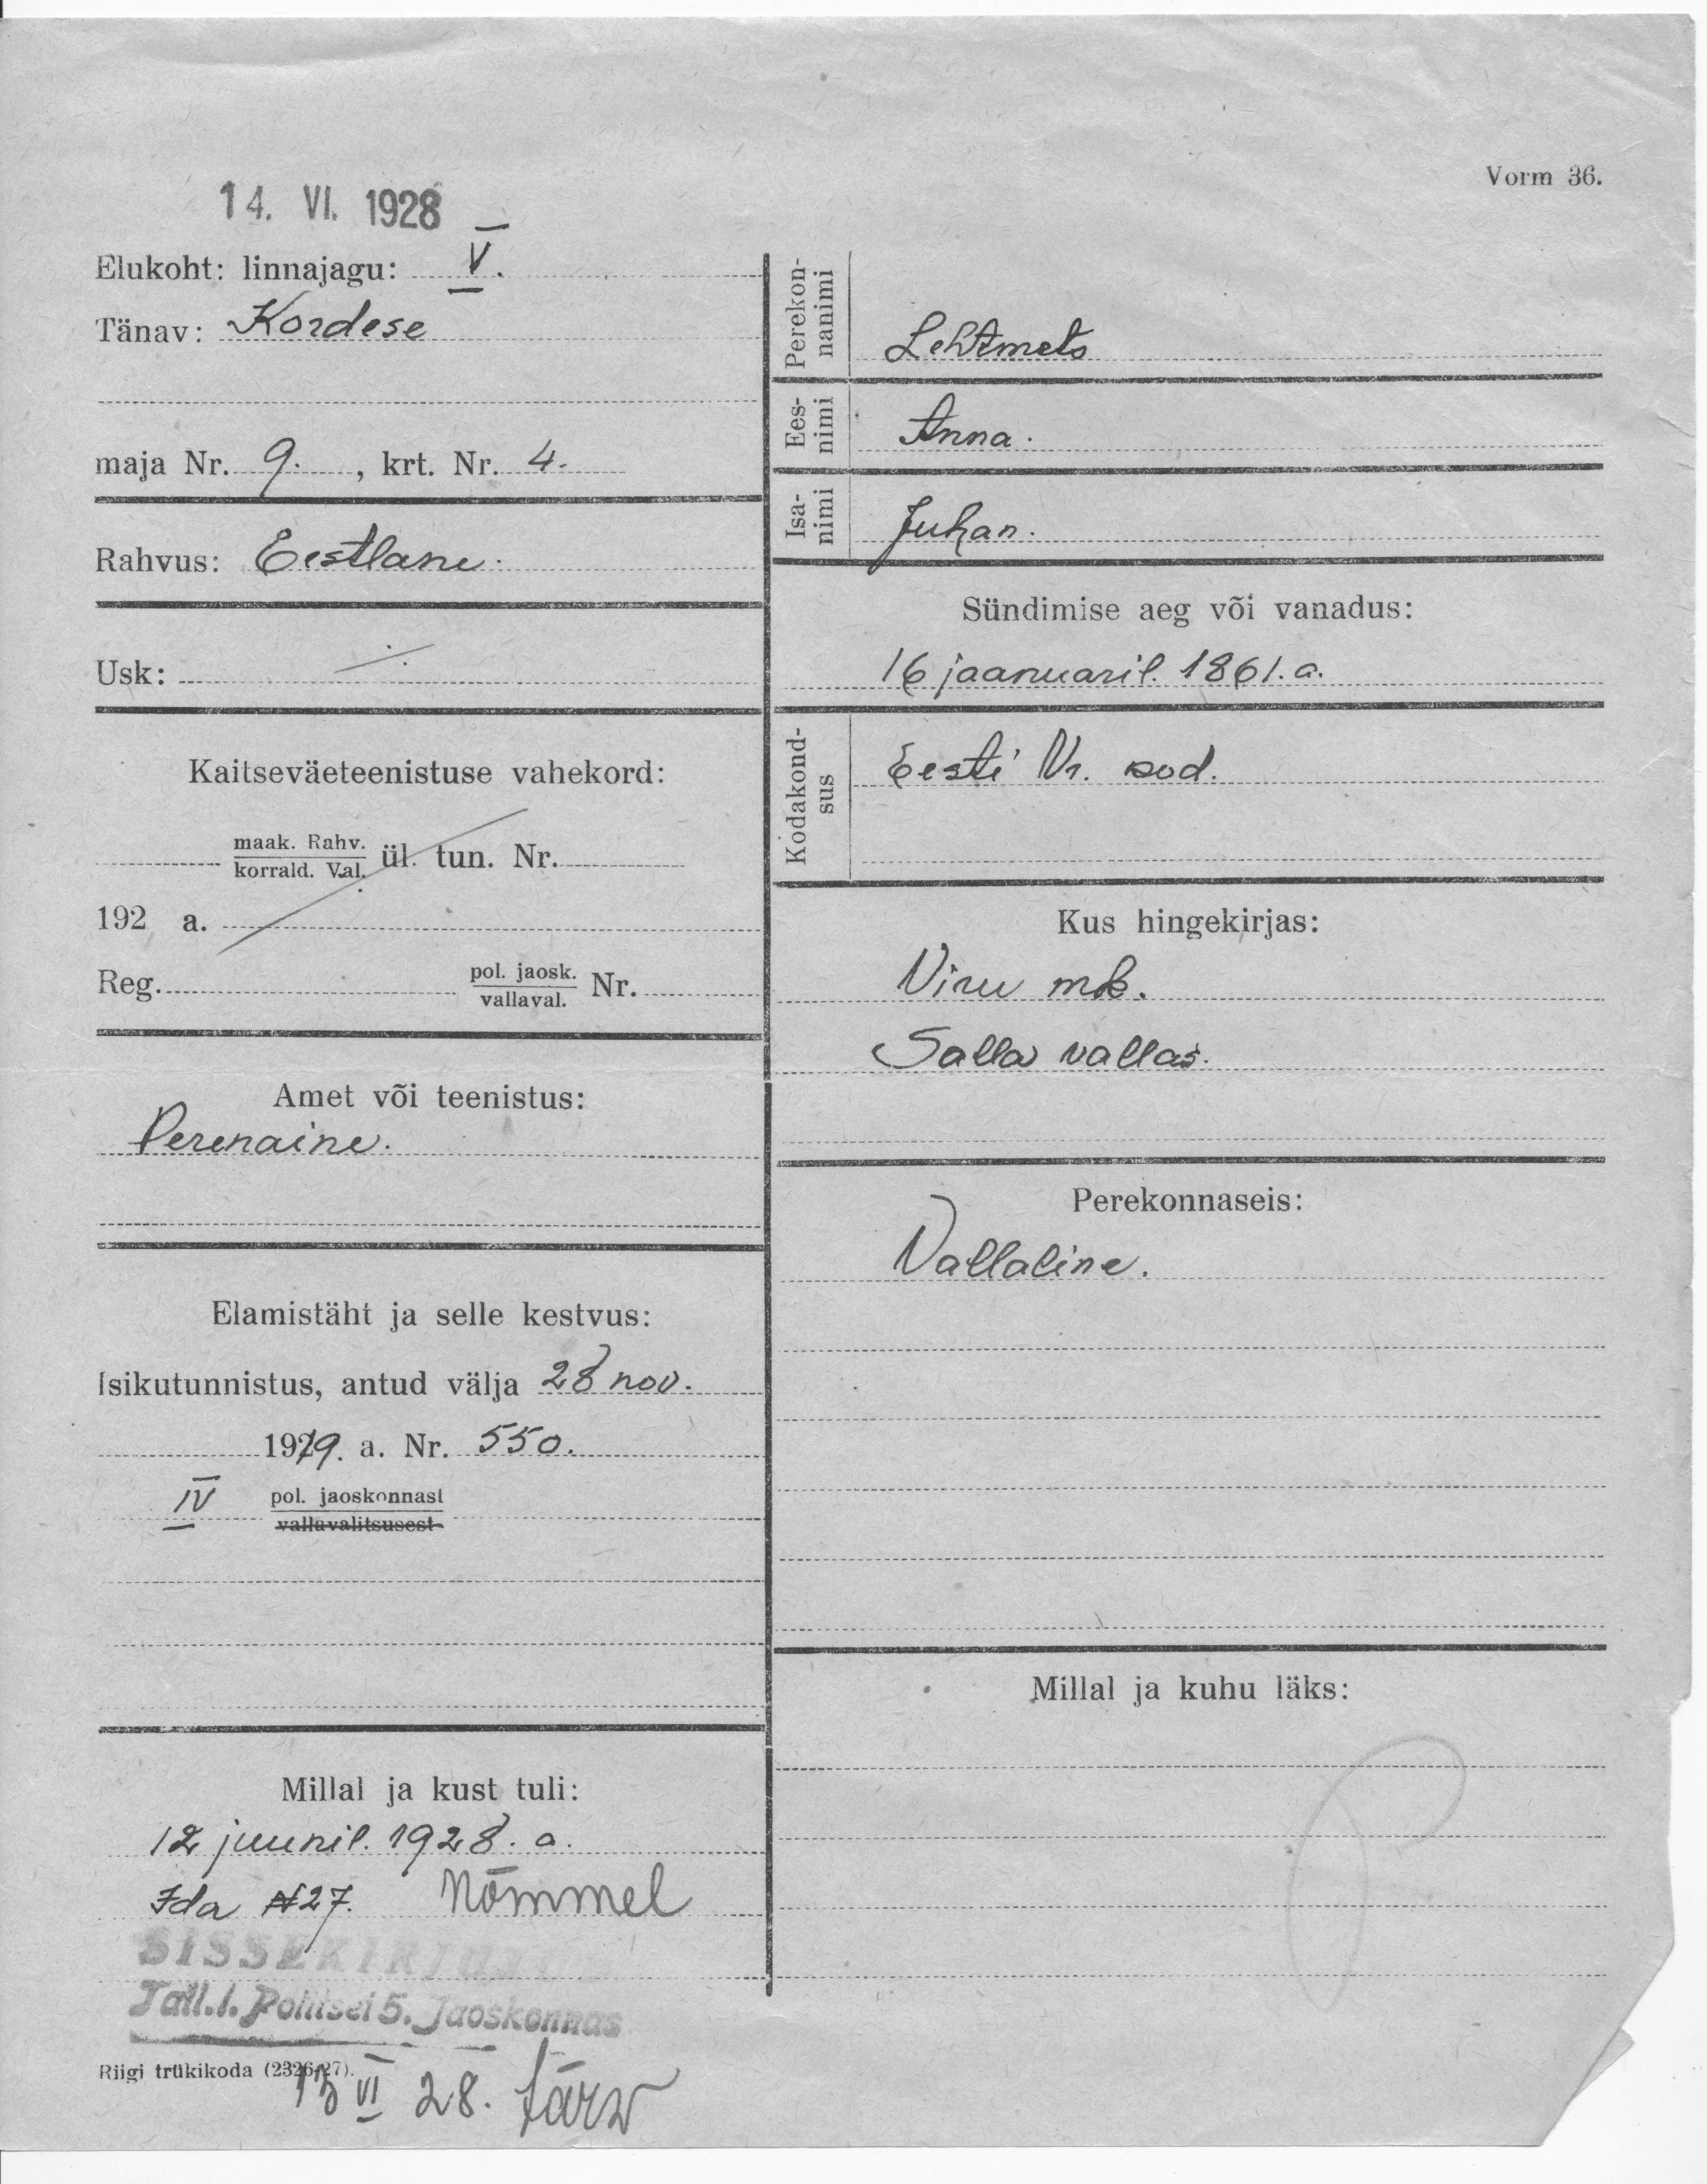 Vorm 36.
14. VI. 1928
Elukoht: linnajagu: V.
Tänav: Kordese
maja Nr. 9. , krt. Nr. 4.
Rahvus: Eestlane.
Usk: ÷
Kaitseväeteenistuse vahekord:
maak. Rahv.
korrald. Val. ül. tun. Nr.
192 a.
Reg. pol. jaosk.
vallaval. Nr.
Amet või teenistus:
Perenaine.
Elamistäht ja selle kestvus:
Isikutunnistus, antud välja 28 nov.
1919. a. Nr. 550.
IV pol. jaoskonnast
vallavalitsusest
Millal ja kust tuli:
12 juunil. 1928. a.
Ida № 27. Nõmmel
SISSEKIRJUT
Tall.l. Politsei 5. Jaoskonnas
Riigi trükikoda (2326/27).
13 VI 28. Järv
Perekon-
nanimi
Lehtmets
Ees-
nimi
Anna.
Isa-
nimi
Juhan.
Sündimise aeg või vanadus:
16 jaanuaril. 1861. a.
Kodakond-
sus
Eesti Vr. kod.
Kus hingekirjas:
Viru mk.
Salla vallas.
Perekonnaseis:
Vallaline.
Millal ja kuhu läks: